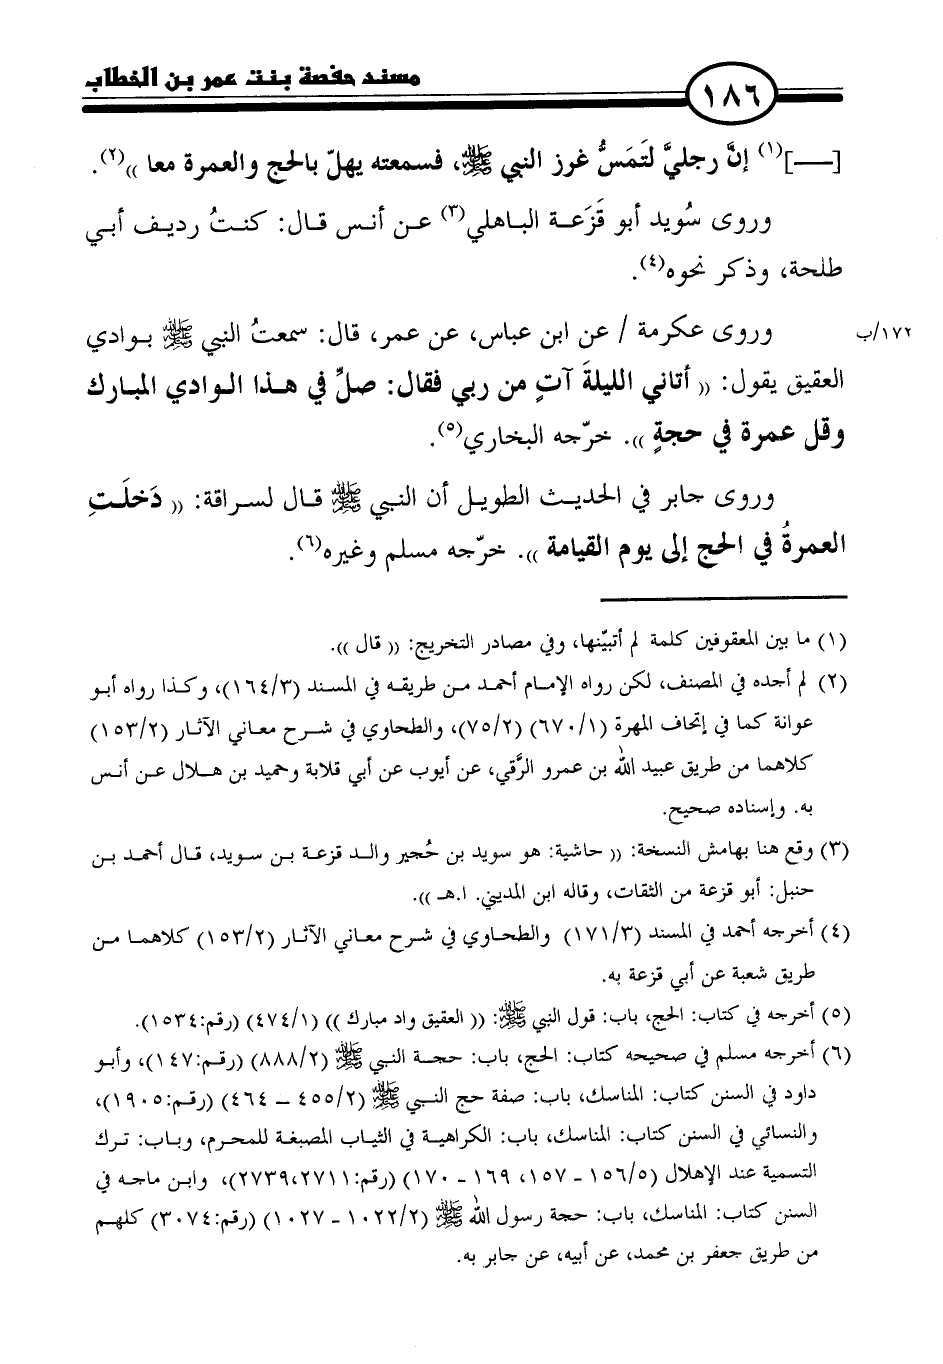 مسند حفصة بنت عمر بن الخطاب
١٨٦
[ــــ](١) إنَّ رجليَّ لتَمَسُّ غرز النبي ﷺ، فسمعته يهلّ بالحج والعمرة معا »(٢).
وروى سُويد أبو قَزَعَة الباهلي(٣) عن أنس قال: كنتُ رديف أبي
طلحة، وذكر نحوه(٤).
وروى عكرمة / عن ابن عباس، عن عمر، قال: سمعتُ النبي ﷺ بوادي
١٧٢/ب
العقيق يقول: « أتاني الليلةَ آتٍ من ربي فقال: صلِّ في هذا الوادي المبارك
وقل عمرة في حجةٍ ». خرّجه البخاري(٥).
وروى جابر في الحديث الطويل أن النبي ﷺ قال لسراقة: « دَخلَتِ
العمرةُ في الحج إلى يوم القيامة ». خرّجه مسلم وغيره(٦).
(١) ما بين المعقوفين كلمة لم أتبيّنها، وفي مصادر التخريج: « قال ».
(٢) لم أجده في المصنف، لكن رواه الإمام أحمد من طريقه في المسند (١٦٤/٣)، وكذا رواه أبو
عوانة كما في إتحاف المهرة (٦٧٠/١) (٧٥/٢)، والطحاوي في شرح معاني الآثار (١٥٣/٢)
كلاهما من طريق عبيد الله بن عمرو الرَّقي، عن أيوب عن أبي قلابة وحميد بن هلال عن أنس
به. وإسناده صحيح.
(٣) وقع هنا بهامش النسخة: « حاشية: هو سويد بن حُجير والد قزعة بن سويد، قال أحمد بن
حنبل: أبو قزعة من الثقات، وقاله ابن المديني. ا.هـ ».
(٤) أخرجه أحمد في المسند (١٧١/٣) والطحاوي في شرح معاني الآثار (١٥٣/٢) كلاهما من
طريق شعبة عن أبي قزعة به.
(٥) أخرجه في كتاب: الحج، باب: قول النبي ﷺ: « العقيق واد مبارك » (٤٧٤/١) (رقم:١٥٣٤).
(٦) أخرجه مسلم في صحيحه كتاب: الحج، باب: حجة النبي ﷺ (٨٨٨/٢) (رقم:١٤٧)، وأبو
داود في السنن كتاب: المناسك، باب: صفة حج النبي ﷺ (٤٥٥/٢ ــ ٤٦٤) (رقم:١٩٠٥)،
والنسائي في السنن كتاب: المناسك، باب: الكراهية في الثياب المصبغة للمحرم، وباب: ترك
التسمية عند الإهلال (١٥٦/٥ ــ ١٥٧، ١٦٩ ــ ١٧٠) (رقم:٢٧١١،٢٧٣٩)، وابن ماجه في
السنن كتاب: المناسك، باب: حجة رسول الله ﷺ (١٠٢٢/٢ ــ ١٠٢٧) (رقم:٣٠٧٤) كلهم
من طريق جعفر بن محمد، عن أبيه، عن جابر به.